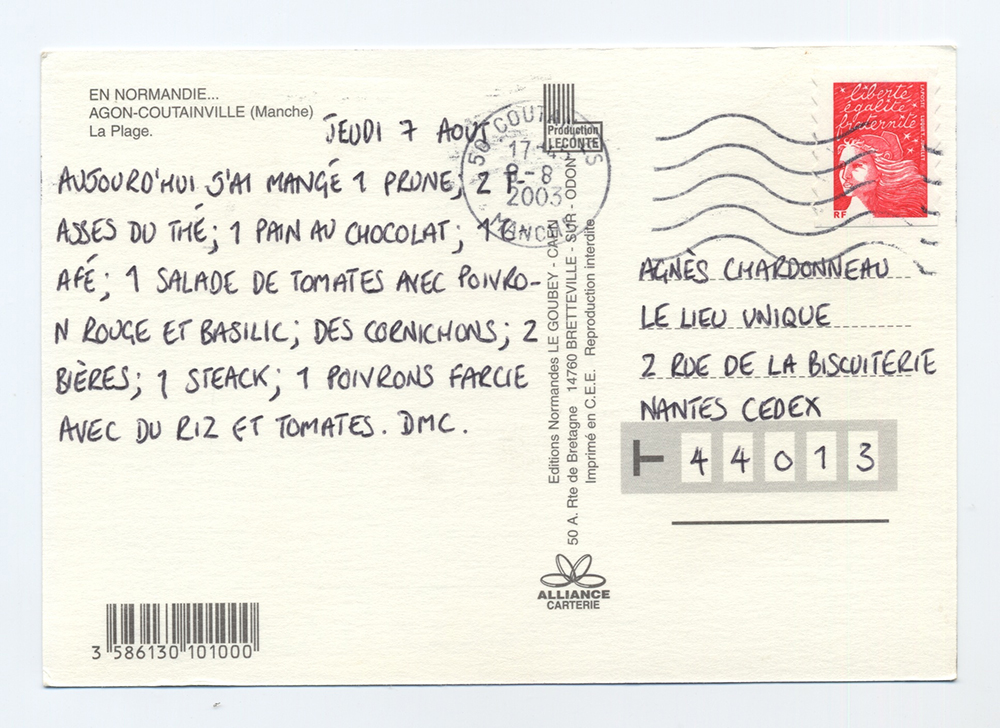 EN NORMANDIE...
AGON-COUTAINVILLE (Manche)
La Plage.
JEUDI 7 AOUT
AUJOURD'HUI J'AI MANGÉ 1 PRUNE; 2 T
ASSES DU THÉ; 1 PAIN AU CHOCOLAT; 1 C
AFÉ; 1 SALADE DE TOMATES AVEC POIVRO-
N ROUGE ET BASILIC; DES CORNICHONS; 2
BIÈRES; 1 STEACK; 1 POIVRONS FARCIE
AVEC DU RIZ ET TOMATES. DMC.
3 586130 101000
Production
LECONTE
50 COUT
2003
Editions Normandes LE GOUBEY - CAEN
50 A. Rte de Bretagne 14760 BRETTEVILLE - SUR - ODON
Imprimé en C.E.E. Reproduction interdite
ALLIANCE
CARTERIE
liberté
égalité
fraternité
RF
AGNÈS CHARDONNEAU
LE LIEU UNIQUE
2 RUE DE LA BISCUITERIE
NANTES CEDEX
44013